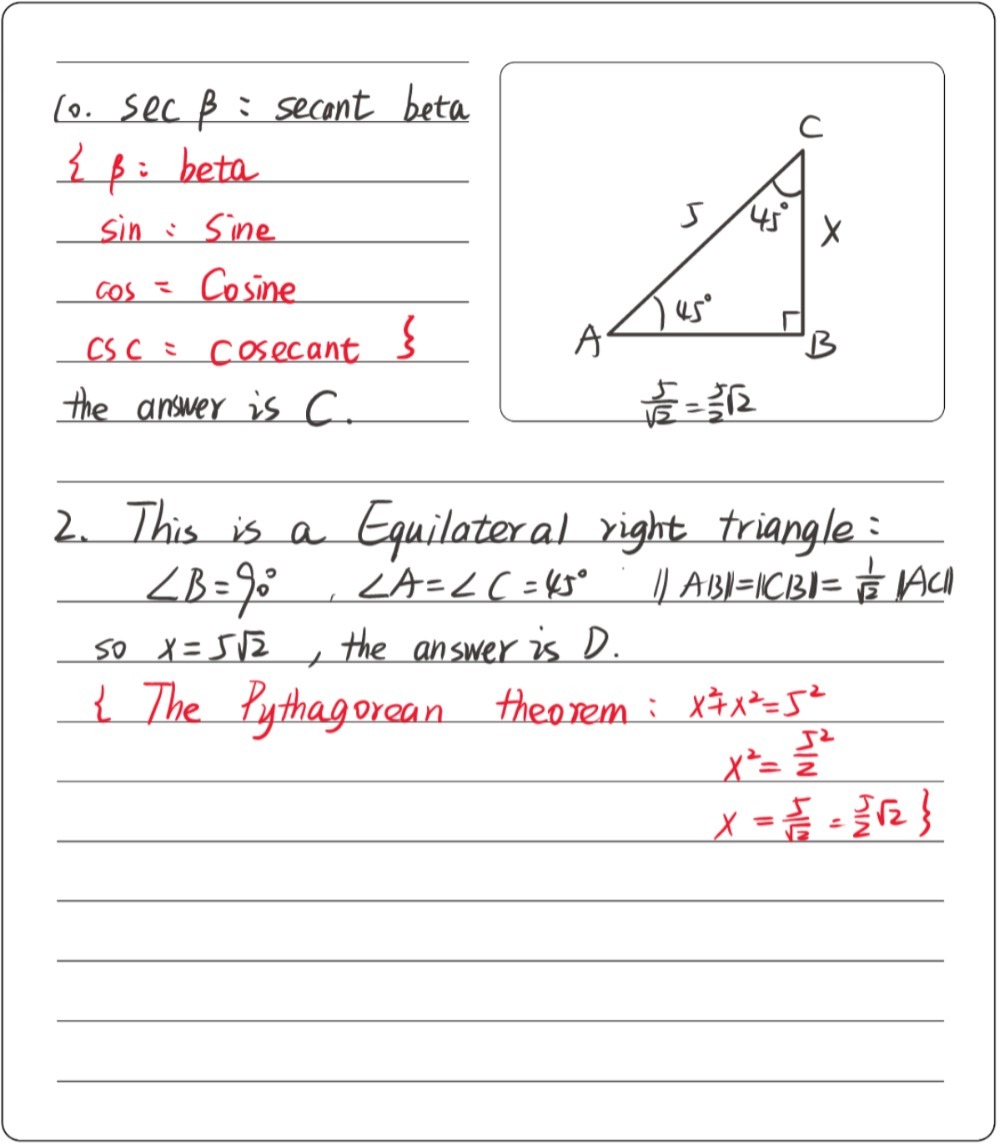 10. sec β : secant beta
{ β : beta
sin : Sine
cos = Cosine
csc = cosecant }
the answer is C.
C
5
45°
X
45°
A
B
5/√2 = 5/2√2
2. This is a Equilateral right triangle :
∠B = 90° , ∠A = ∠C = 45° ‖AB‖=‖CB‖= 1/√2 ‖AC‖
so x = 5√2 , the answer is D.
{ The Pythagorean theorem : x²+x²=5²
x² = 5²/2
x = 5/√2 = 5/2√2 }